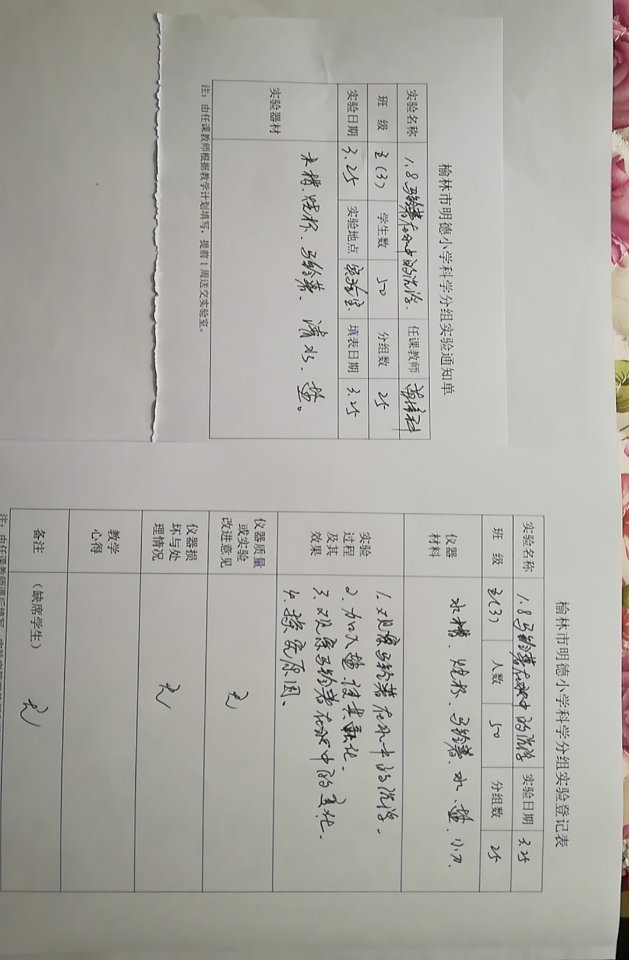 榆林市明德小学科学分组实验通知单
实验名称 1.8马铃薯在水中的沉浮. 任课教师
班 级 五(3) 学生数 50 分组数 25
实验日期 3.25 实验地点 实验室. 填表日期 3.25
实验器材 水槽、烧杯、马铃薯、清水、盐。
注：由任课教师根据教学计划填写，提前1周送交实验室。
榆林市明德小学科学分组实验登记表
实验名称 1.8马铃薯在水中的沉浮 实验日期 3.25
班 级 五(3) 人数 50 分组数 25
仪器
材料
水槽、烧杯、马铃薯、水、盐、小刀.
实验
过程
及其
效果
1.观察马铃薯在水中的沉浮.
2.加入盐.使其融化.
3.观察马铃薯在水中的变化.
4.探究原因.
仪器质量
或实验
改进意见
无
仪器损
坏与处
理情况
无
教学
心得
备注 (缺席学生) 无
注：由任课教师课后填写，